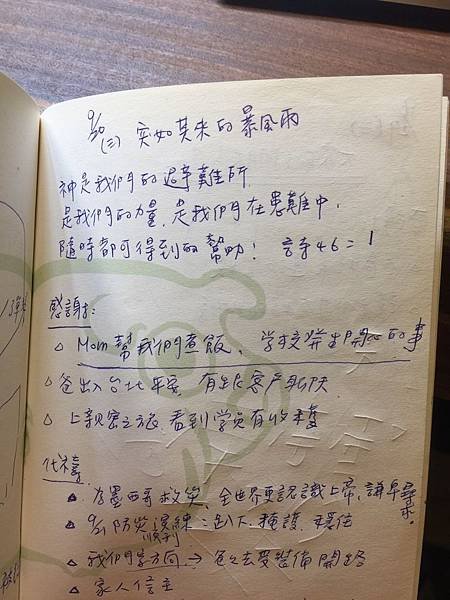 9/20 (三) 突如其来的暴風雨
神是我們的避難所
是我們的力量,是我們在患難中,
隨時都可得到的幫助! 詩46=1
感謝:
△ Mom幫我們煮飯、學校發生開心的事
△ 爸出入台北平安,有跟客户聯陝
△ 上親密之旅 看到学員有收穫
代禱
▲ 为墨西哥救災,全世界更認識上帝,謙卑尋求。
▲ 9/21防災演練:趴下、掩護、穩住
順利
▲ 我們家方向→爸爸去受裝備 開路
▲ 家人信主